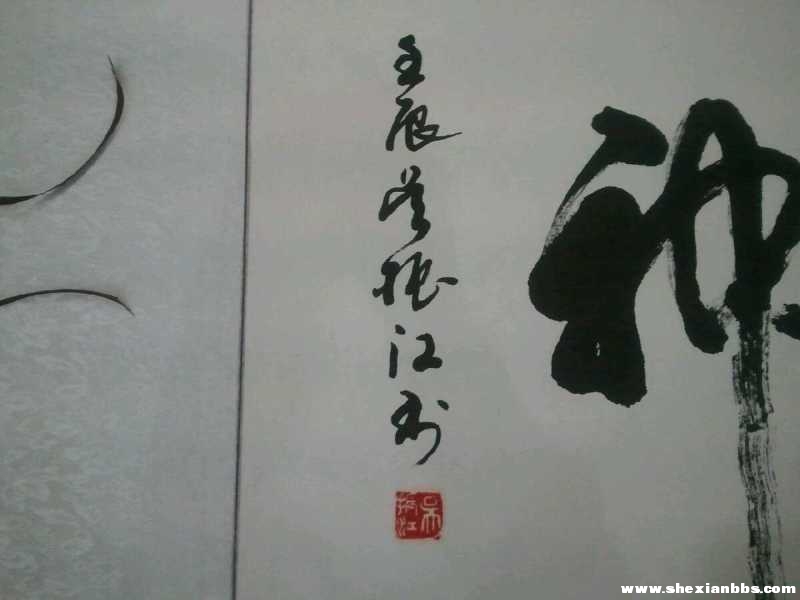 神
壬辰吴振江书
吴振江
www.shexianbbs.com